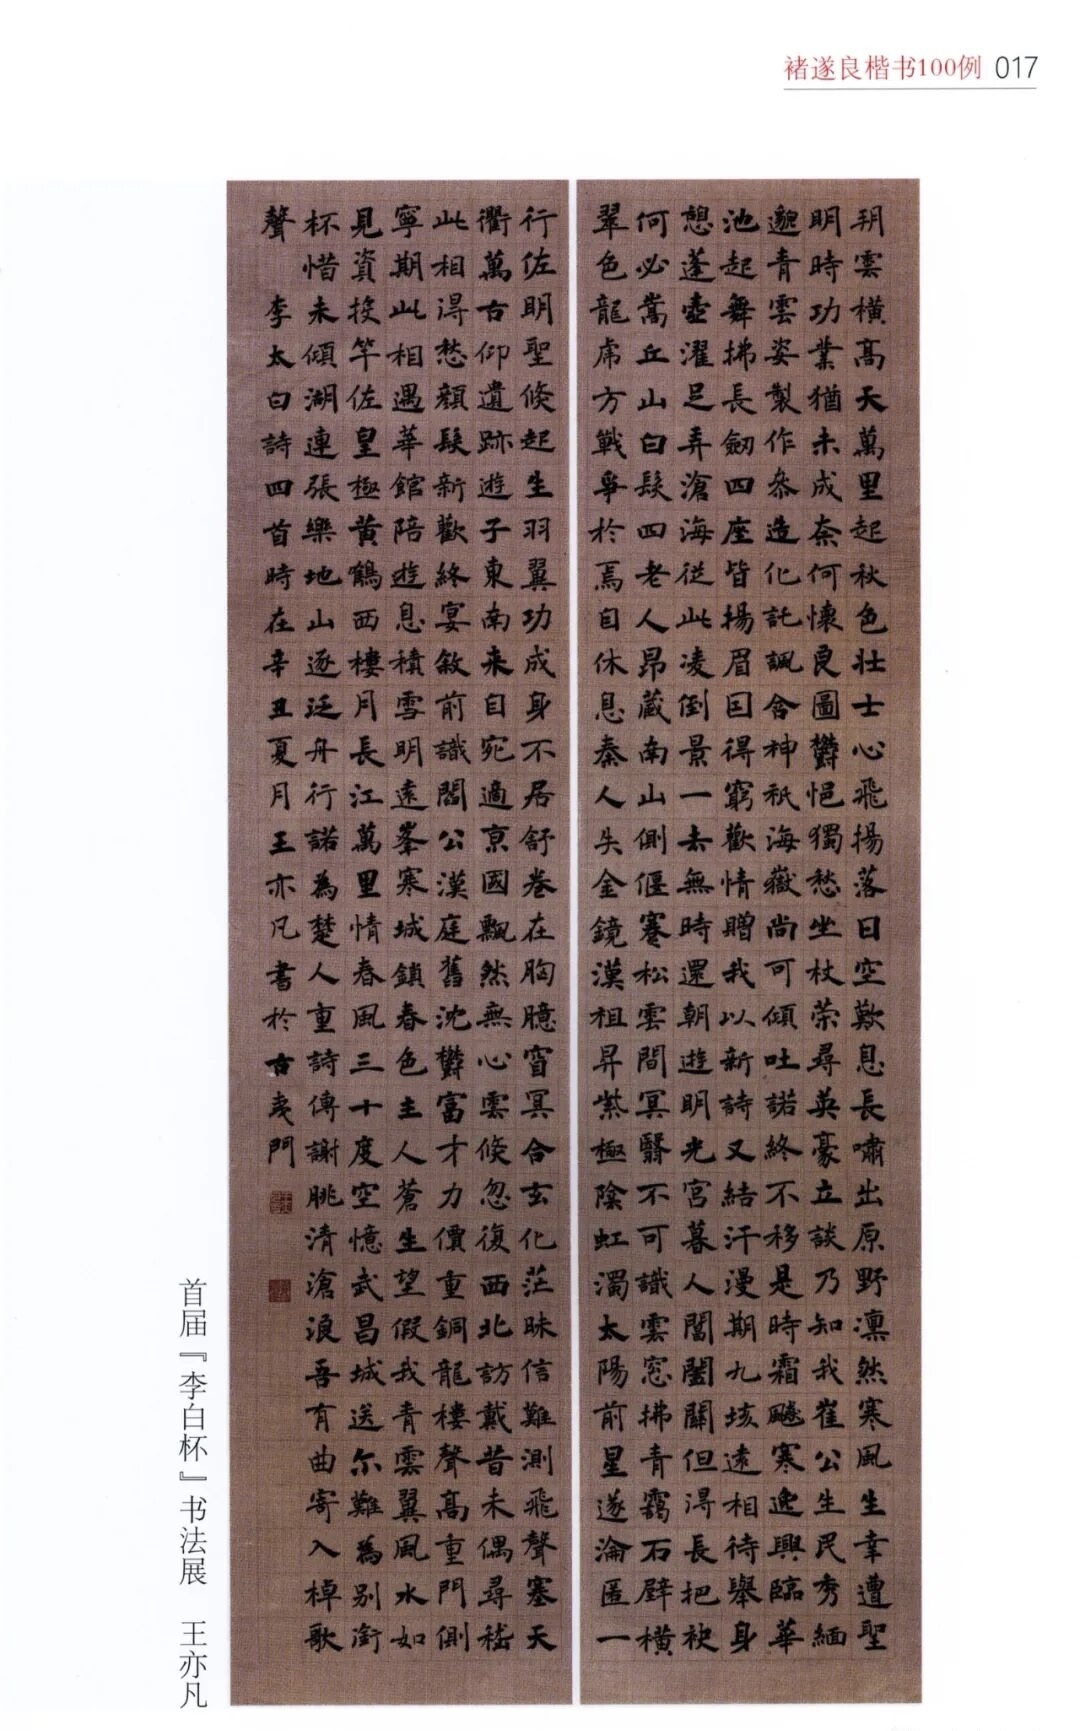 褚遂良楷书100例 017
朔雲橫高天萬里起秋色壯士心飛揚落日空歎息長嘯出原野凛然寒風生幸遭聖
明時功業猶未成奈何懷良圖欝悒獨愁坐杖荣尋英豪立談乃知我崔公生民秀緬
邈青雲姿製作叅造化託諷含神祇海嶽尚可傾吐諾終不移是時霜飈寒逸興臨華
池起舞拂長劒四座皆揚眉因得窮歡情贈我以新詩又結汗漫期九垓遠相待舉身
憩蓬壺濯足弄滄海從此凌倒景一去無時還朝遊明光宮暮入閶闔關但得長把袂
何必嵩丘山白髮四老人昂藏南山側偃蹇松雲間冥翳不可識雲窓拂青靄石壁橫
翠色龍虎方戰爭於焉自休息秦人失金鏡漢祖昇紫極陰虹濁太陽前星遂淪匿一
行佐明聖倐起生羽翼功成身不居舒卷在胸臆窅冥合玄化茫昧信難測飛聲塞天
衢萬古仰遺跡遊子東南来自宛適京國飄然無心雲倐忽復西北訪戴昔未偶尋嵇
此相得愁顏髮新歡終宴敘前識閻公漢庭舊沈欝富才力價重銅龍樓聲高重門側
寧期此相遇華館陪遊息積雪明遠峯寒城鎖春色主人蒼生望假我青雲翼風水如
見資投竿佐皇極黃鶴西樓月長江萬里情春風三十度空憶武昌城送尔難為别銜
杯惜未傾湖連張樂地山逐泛舟行諾為楚人重詩傳謝朓清滄浪吾有曲寄入棹歌
聲 李太白詩四首時在辛丑夏月王亦凡書於古夷門
首届『李白杯』书法展 王亦凡